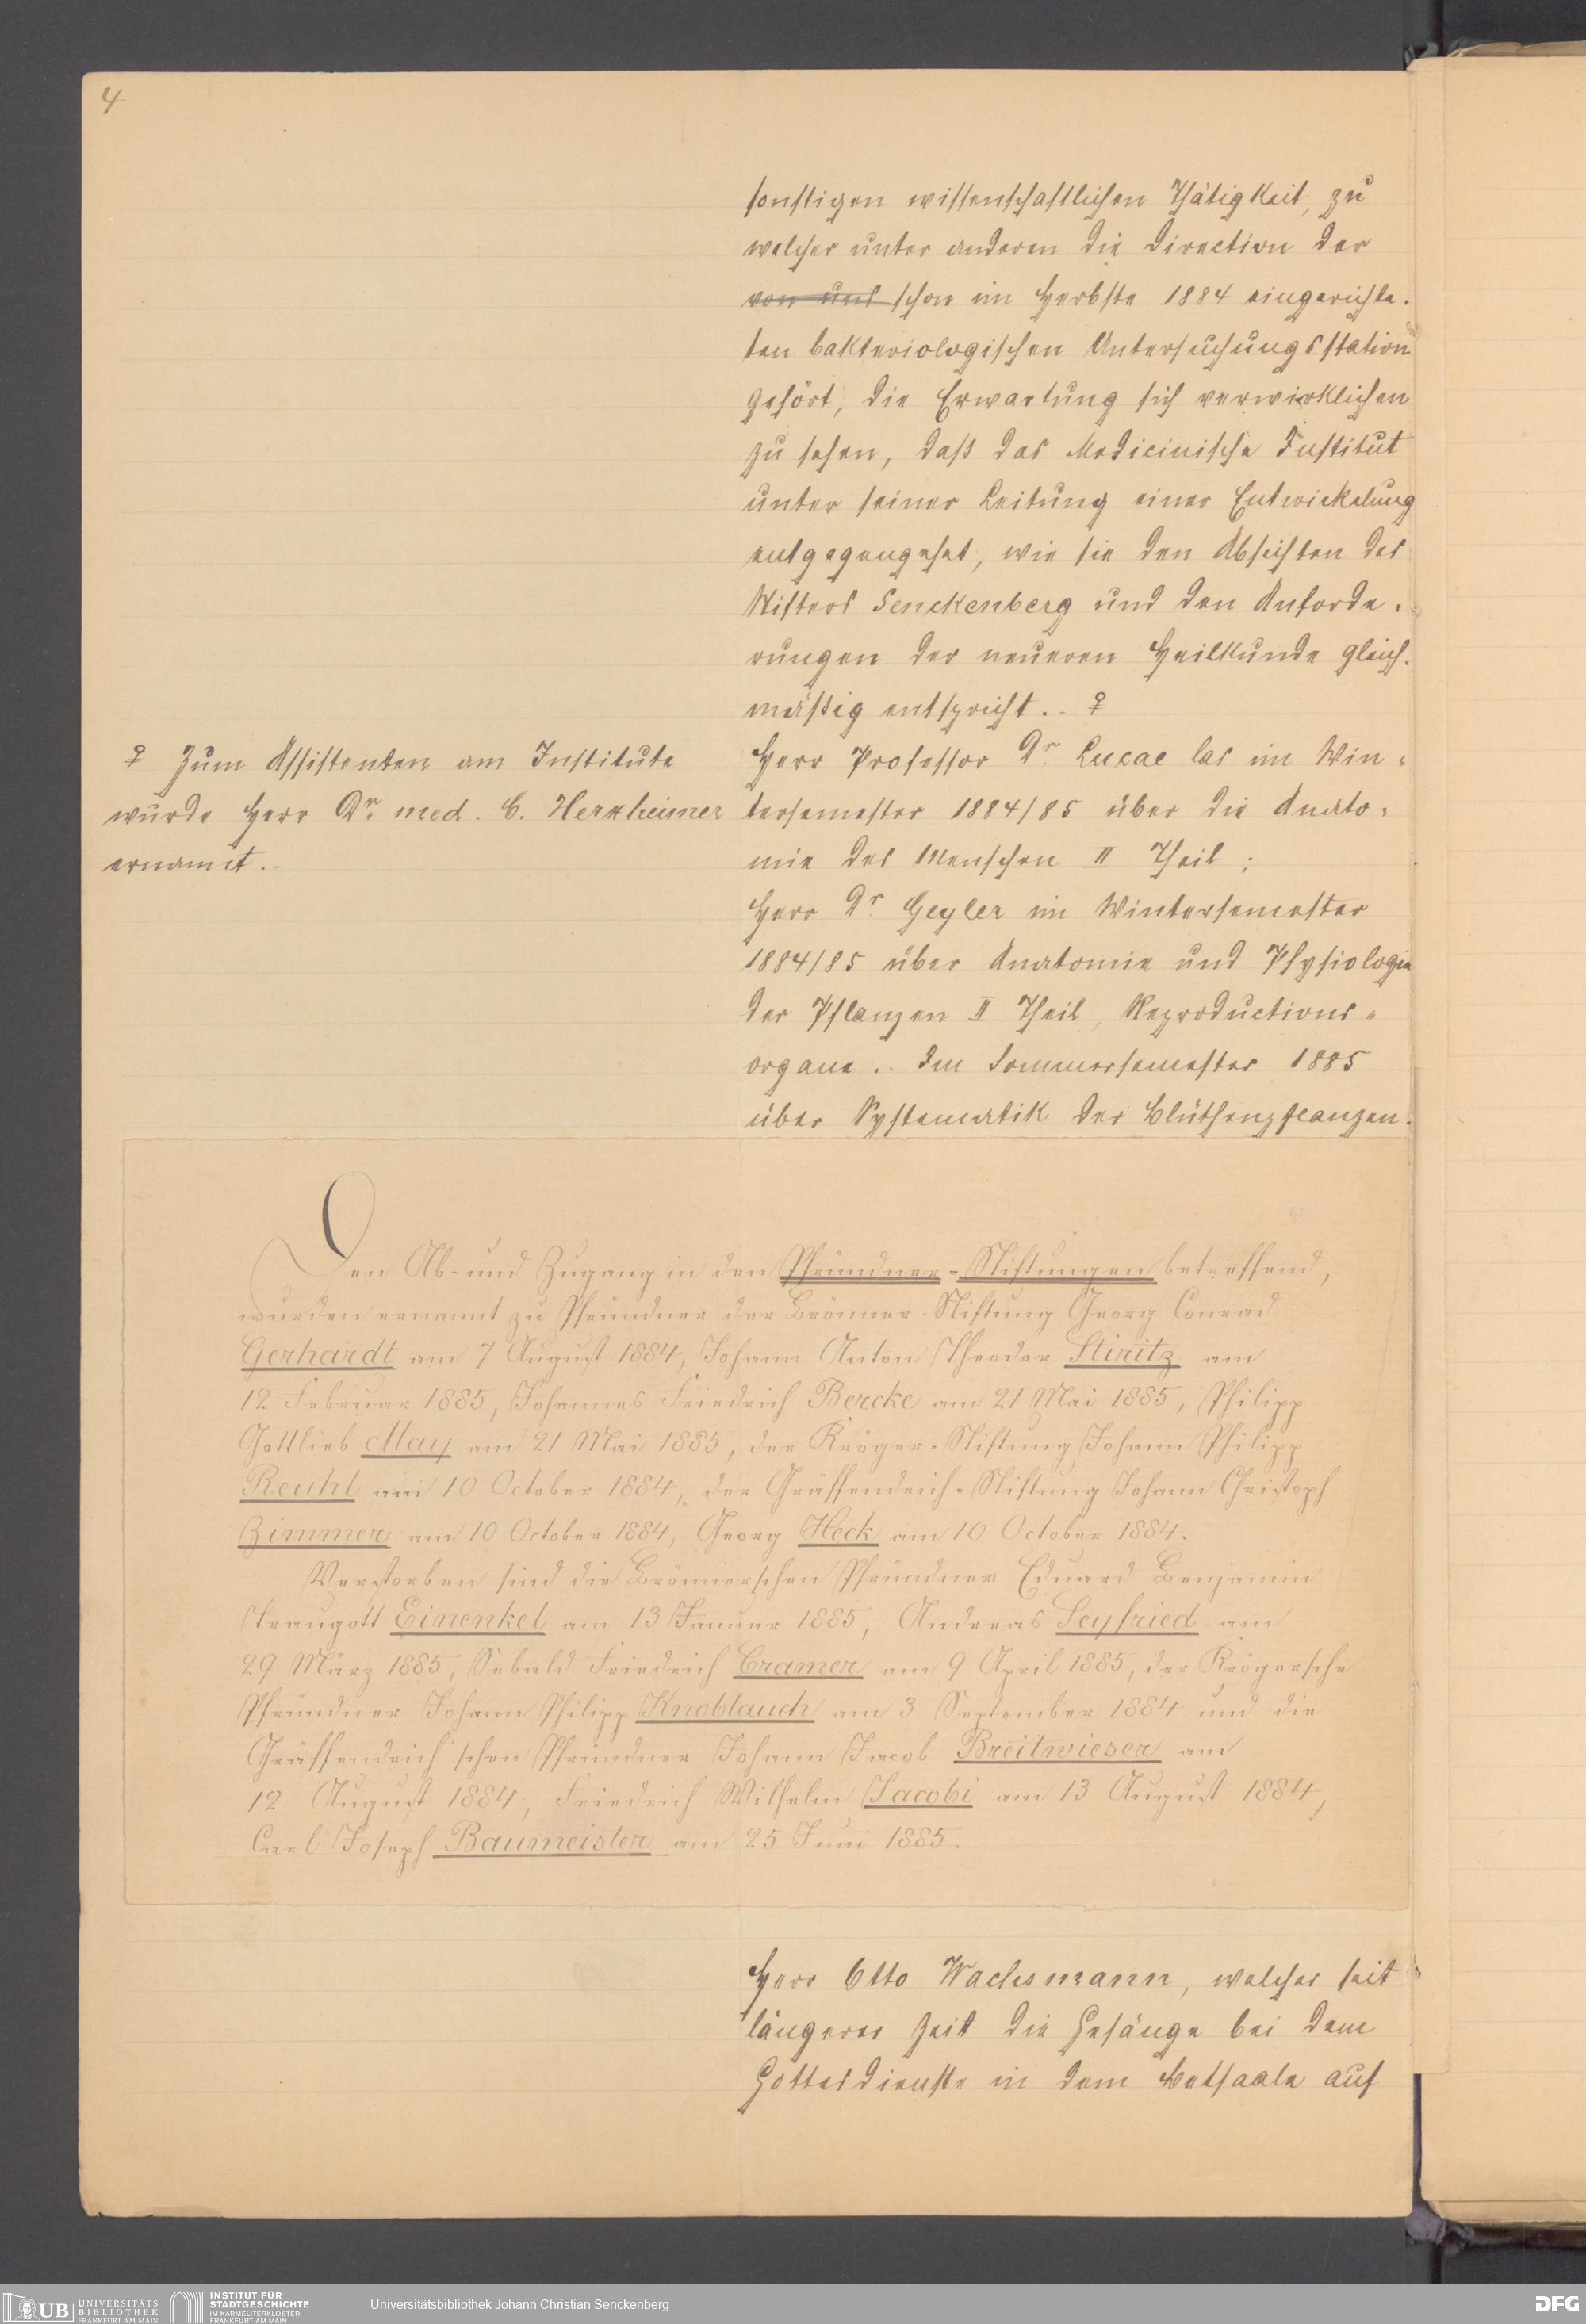 4
sonstigen wissenschaftlichen Thätigkeit, zu
welcher unter anderen die Direction der
von uns schon im Herbste 1884 eingerichte-
ten bakteriologischen Untersuchungsstation
gehört, die Erwartung sich verwirklichen
zu sehen, daß das Medicinische Institut
unter seiner Leitung einer Entwickelung
entgegengehet, wie sie den Absichten des
Stifters Senckenberg und den Anforde-
rungen der neueren Heilkunde gleich-
mäßig entspricht. ♀
♀ Zum Assistenten am Institute
wurde Herr Dr. med. C. Herxheimer
ernannt.
Herr Professor Dr. Lucae las im Win-
tersemester 1884/85 über die Anato-
mie des Menschen II Theil;
Herr Dr. Geyler im Wintersemester
1884/85 über Anatomie und Physiologie
der Pflanzen II Theil, Reproductions-
organe. Im Sommersemester 1885
über Systematik der Blüthenpflanzen.
Den Ab- und Zugang in den Pfründner-Stiftungen betreffend,
wurden ernannt zu Pfründner der Brönner-Stiftung Georg Conrad
Gerhardt am 7 August 1884, Johann Anton Theodor Stiritz am
12 Februar 1885, Johannes Friedrich Bercke am 21 Mai 1885, Philipp
Gottlieb May am 21 Mai 1885, der Kröger-Stiftung Johann Philipp
Reuhl am 10 October 1884, der Gräffendeich-Stiftung Johann Christoph
Zimmer am 10 October 1884, Georg Heck am 10 October 1884.
Verstorben sind die Brönnerschen Pfründner Eduard Benjamin
Traugott Einenkel am 13 Januar 1885, Andreas Seyfried am
29 März 1885, Sebald Friedrich Cramer am 9 April 1885, der Krögersche
Pfründner Johann Philipp Knoblauch am 3 September 1884 und die
Gräffendeich'schen Pfründner Johann Jacob Breitwieser am
12 August 1884, Friedrich Wilhelm Jacobi am 13 August 1884,
Carl Joseph Baumeister am 25 Juni 1885.
Herr Otto Wachsmann, welcher seit
längerer Zeit die Gesänge bei dem
Gottesdienste in dem Betsaale auf
UB UNIVERSITÄTS
BIBLIOTHEK
FRANKFURT AM MAIN
INSTITUT FÜR
STADTGESCHICHTE
IM KARMELITERKLOSTER
FRANKFURT AM MAIN
Universitätsbibliothek Johann Christian Senckenberg
DFG